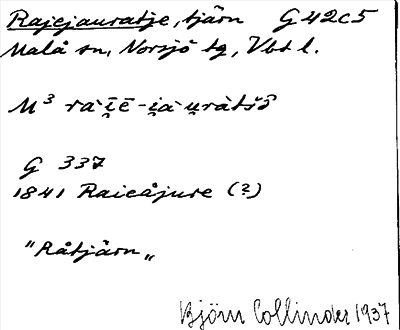 Rajejauratje, tjärn G 42c5
Malå sn, Norsjö tg, Vbt l.
M³
G 337
1841 Raieåjure (?)
"Råtjärn"
Björn Collinder 1937